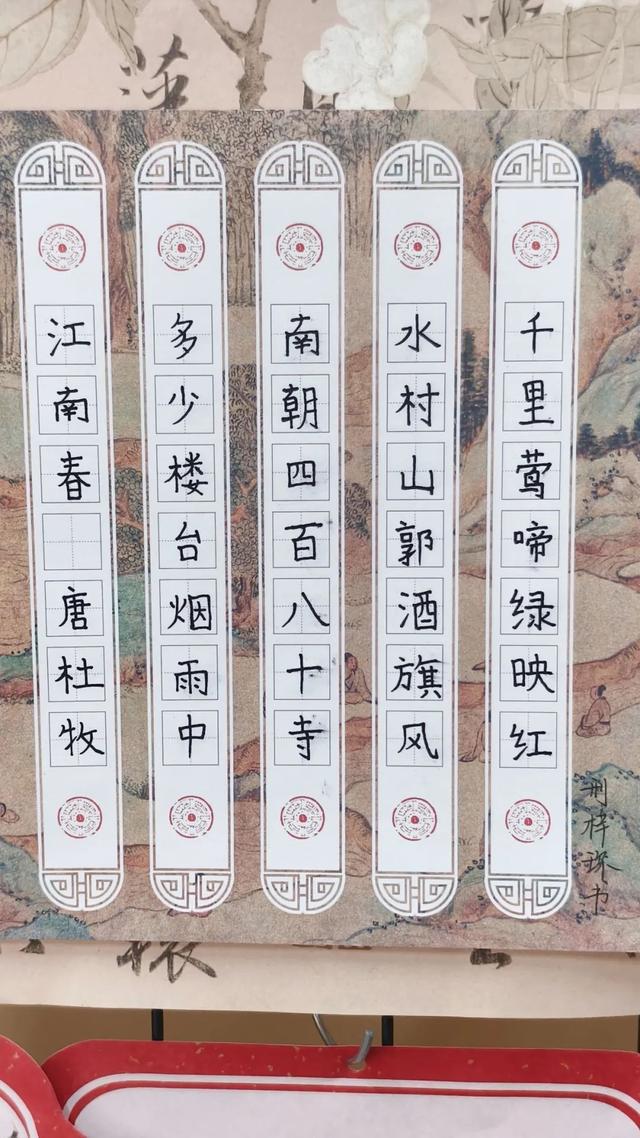 千里莺啼绿映红
水村山郭酒旗风
南朝四百八十寺
多少楼台烟雨中
江南春 唐杜牧
荆梓琛书